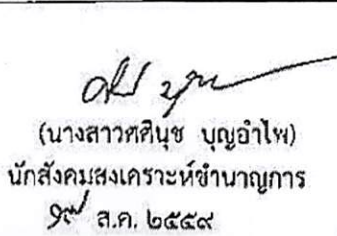 (นางสาวศศินุช บุญอำไพ)
นักสังคมสงเคราะห์ชำนาญการ
ส.ค. ๒๕๕๙